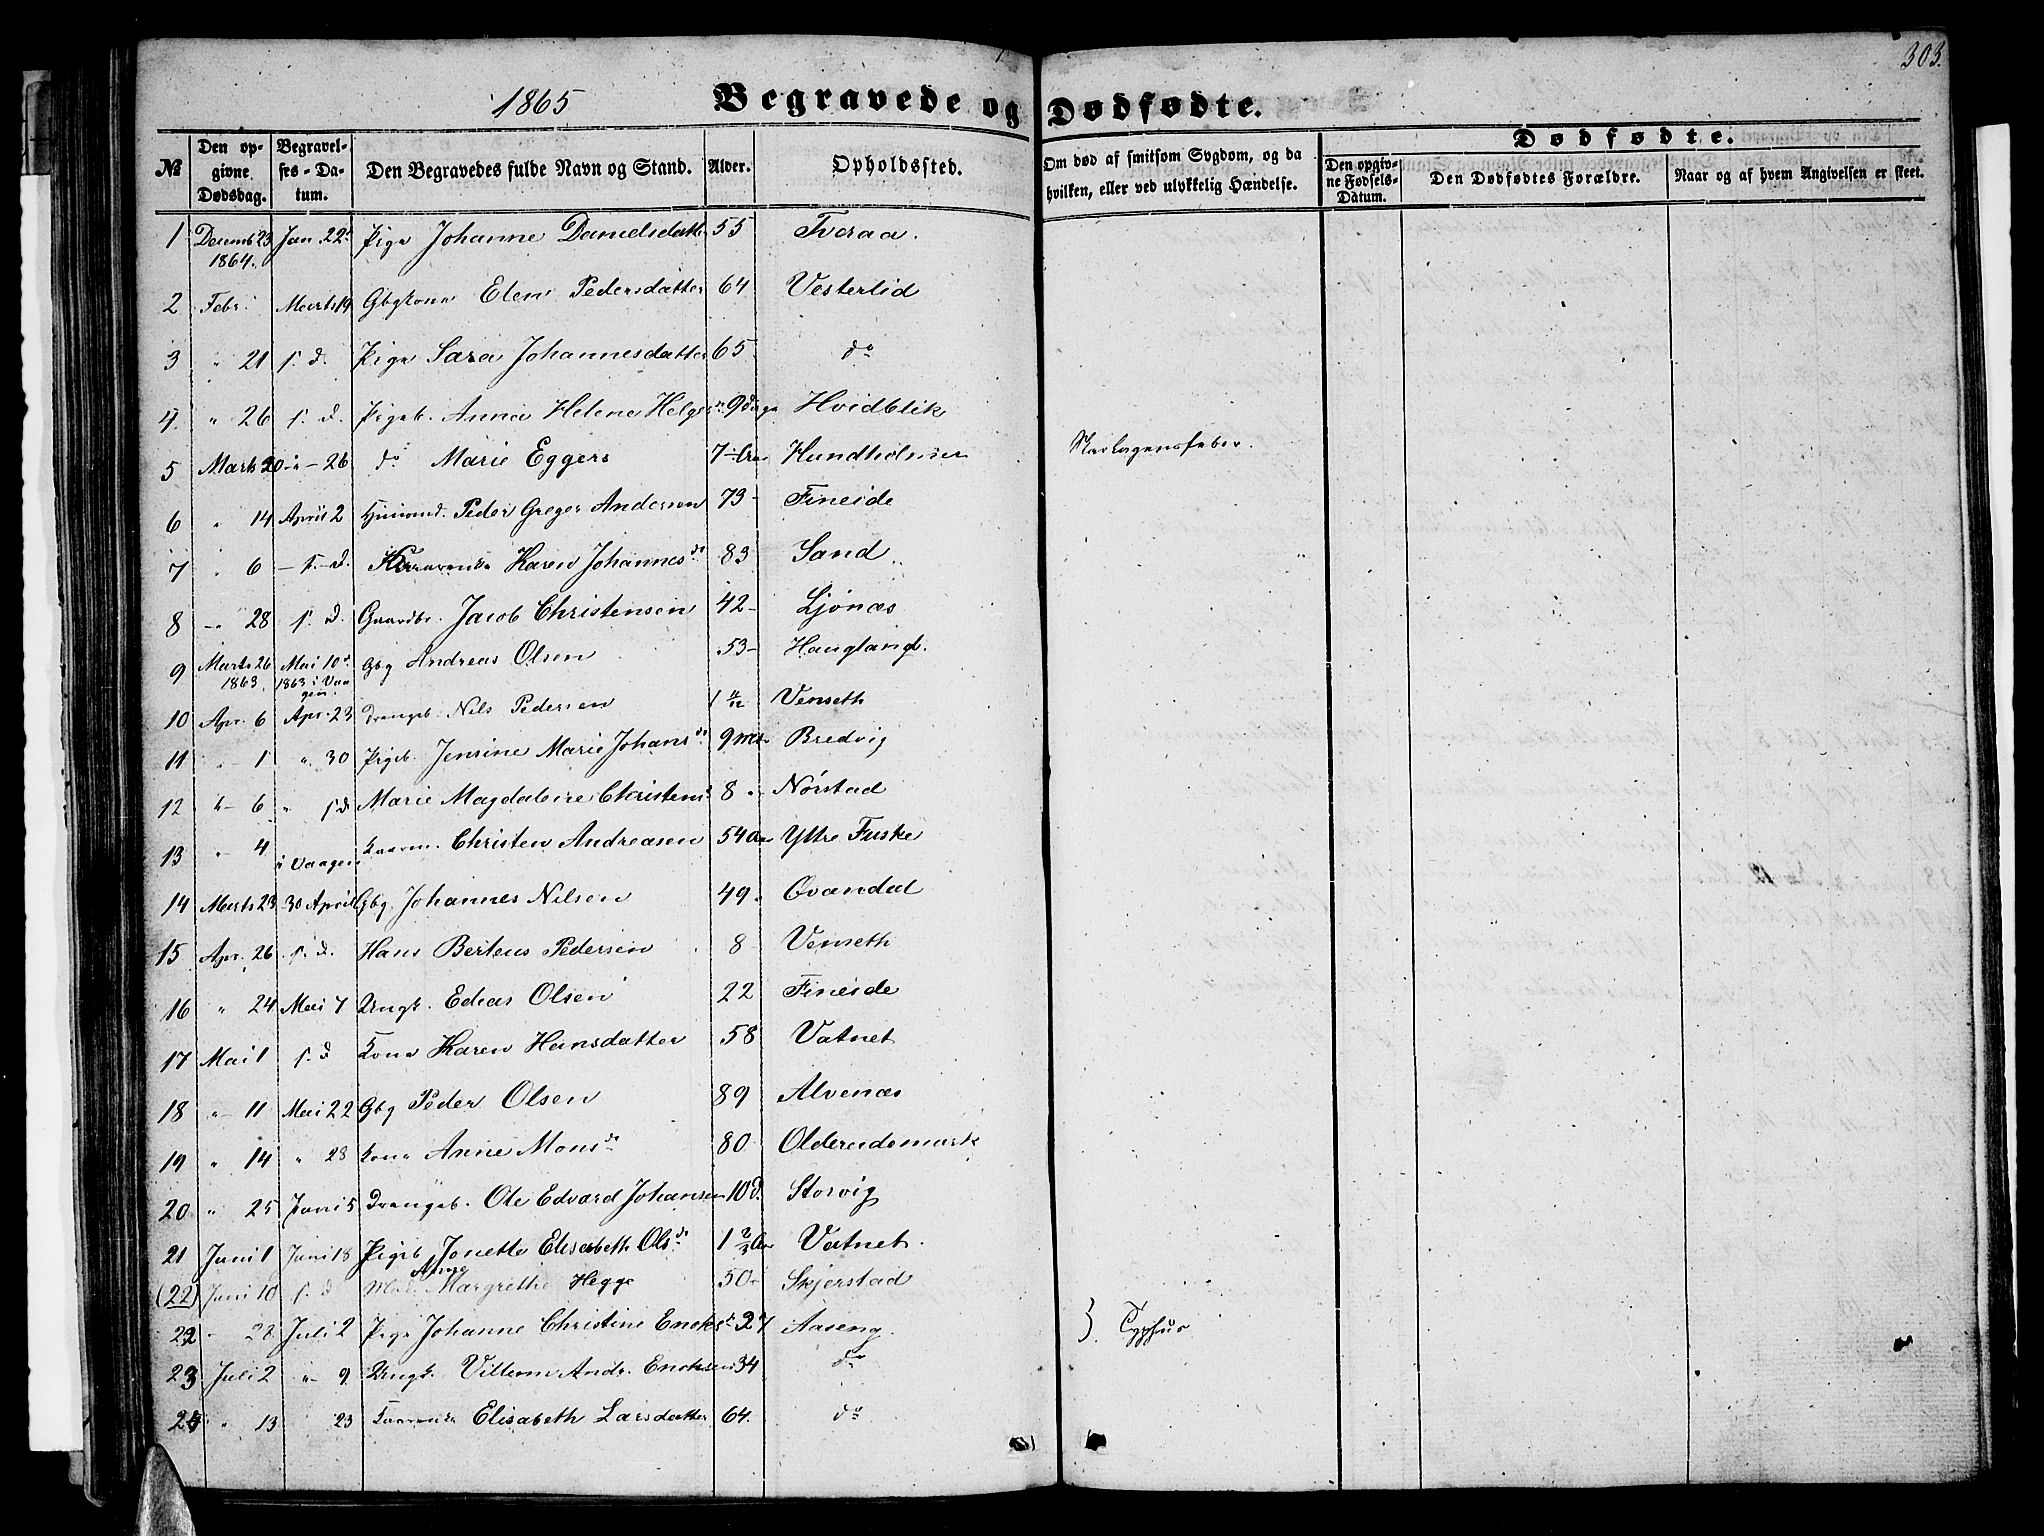 303.
1865 Begravede og Dødfødte.
№ Den opgivne Dødsdag. Begravelses-Datum. Den Begravedes fulde Navn og Stand. Alder. Opholdssted. Om død af smitsom Sygdom, og da hvilken, eller ved ulykkelig Hændelse. Dødfødte. Den opgivne Fødsels-Datum. Den Dødfødtes Forældre. Naar og af hvem Angivelsen er skeet.
1 Decemb 23 1864. Jan. 22d Pige Johanne Danielsdatter 55 Tveraa.
2 Febr. Marts 19 Gbgkone Elen Pedersdatter 64 Vesterlid
3 " 21 s. d. Pige Sara Johannesdatter 65 do
4. " 26 s. d. Pigeb. Anna Helene Helges 9 Dage Hvidblik
5 Marts 20 " - 26 do Marie Eggers 7 Aar Hundholmen Skarlagensfeber.
6 " 14 April 2 Huusmd. Peder Greger Andersen 73 - Fineide
7 " 6 - s. d. Karen Johannesdr 83 Sand
8 - " 28 s. d. Gaardbr. Jacob Christensen 42 - Ljønæs
9 Marts 26 1863. Mai 10d 1863 i Vaagen Gbg Andreas Olsen 53 - Haugland.
10 Apr. 6 Apr. 23 Drengeb. Nils Pedersen 1 Venseth
11 " - 1 " 30 Pigeb. Jensine Marie Johansdr 9 Mdr Bredvig
12 " - 6 " s d Marie Magdalene Christens 8 " Nørstad
13 " - 4 i Vaagen Kaarm. Christen Andreasen 54 Aar Yttre Fuske
14 Marts 23 30 April Gbg. Johannes Nilsen 49 " Qvandal
15 Apr. 26 s. d. Hans Berteus Pedersen 8 - Venseth
16 " 24 Mai 7 Ungk. Edias Olsen 22 Fineide
17 Mai 1 s. d Kone Karen Hansdatter 58 Vatnet
18 " - 11 Mai 22 Gbg Peder Olsen 89 Alvenæs
19 " 14 " 28 Kone Anne Monsdr 80 Oldereidsmark
20 " 25 Juni 5 Drengeb. Ole Edvard Johansen 10 d. Storvig
21 Juni 1 Juni 18 Pigeb Jonette Elisabeth Olsdr 1 2/3 Aar Vatnet.
(22) Juni 10 s. d Mad. Anne Margrethe Hegge 50 Skjerstad
22 " 28 Juli 2 Pige Johanne Christine Ericksdr 27 Aaseng. } Typhus
23 Juli 2 " 9 Ungk. Villum Andr. Ericksen 34 do
24 " 13 " 23 Kaarenke Elisabeth Larsdatter 64. do